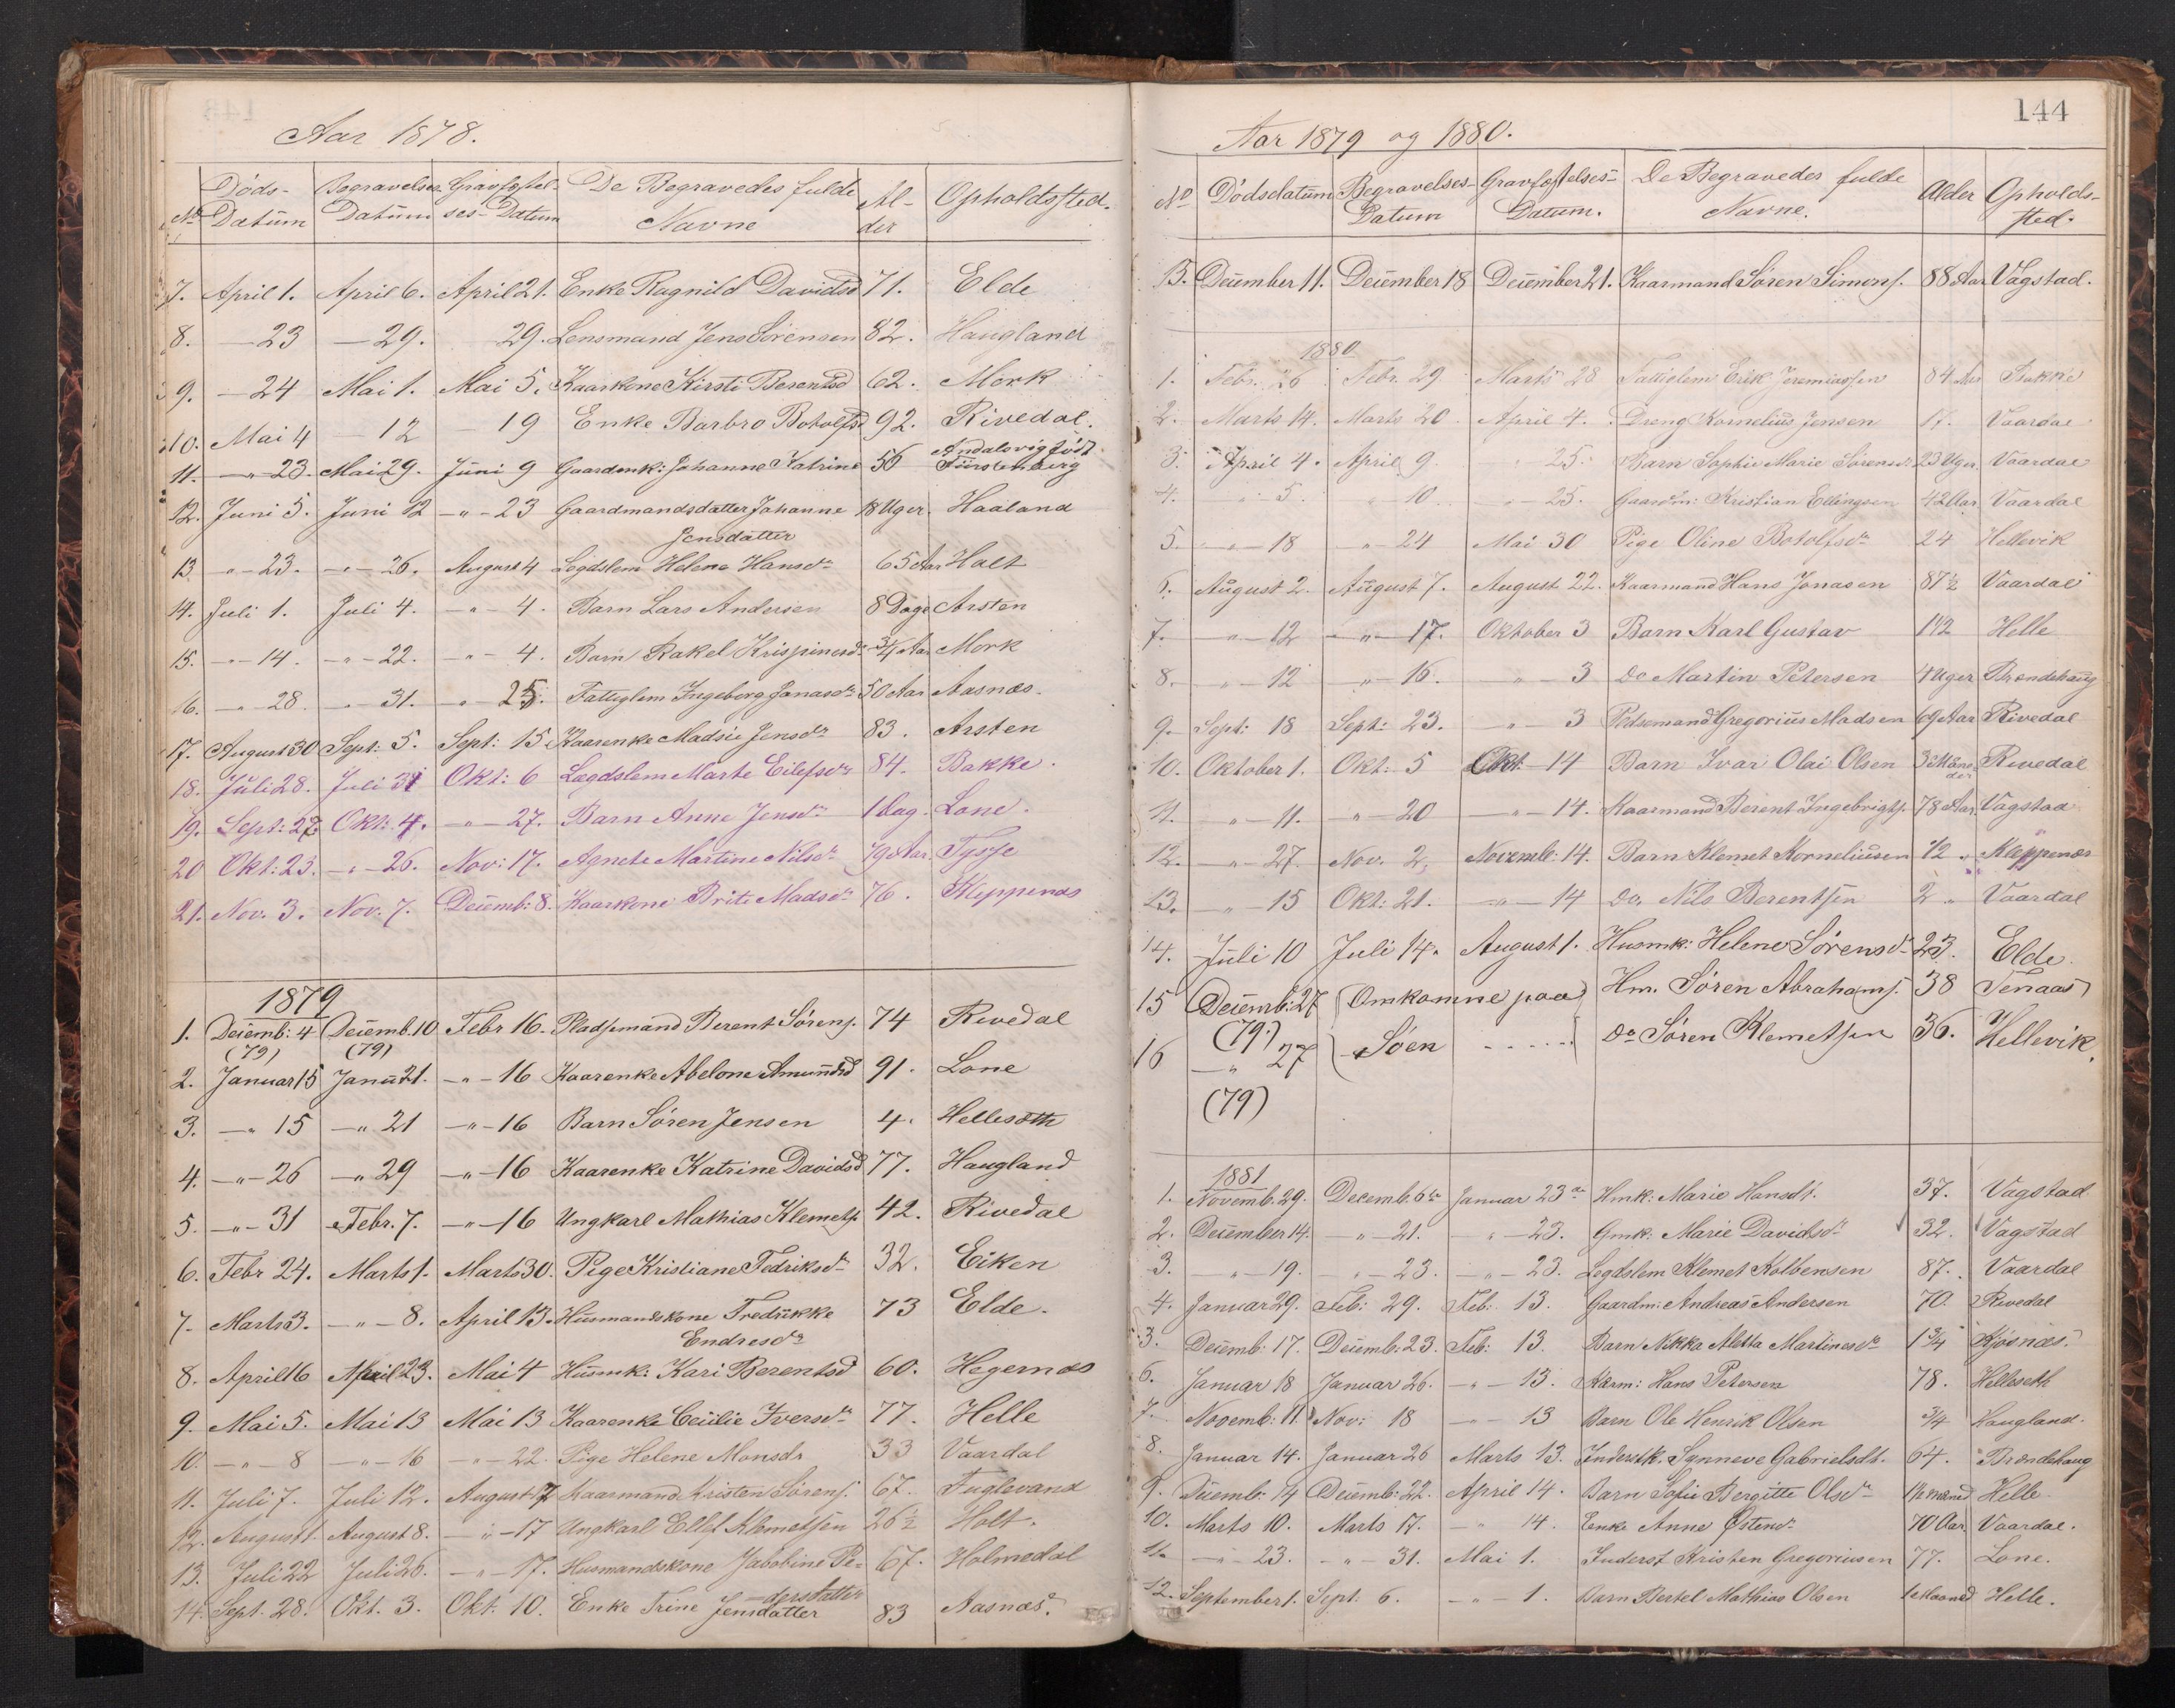 Aar 1878.
No Døds-Datum Begravelses Datum Gravfæstel-ses-Datum De Begravedes fulde Navne Al-der Opholdssted.
7. April 1. April 6. April 21. Enke Ragnild Davidsd 71. Elde
8. — 23 — 29. 29. Lensmand Jens Sørensen 82. Haugland
9. — 24 Mai 1. Mai 5. Kaarkone Kirsti Berentsd 62. Mork
10. Mai 4 — 12 — 19 Enke Barbro Botolfsd 92. Rivedal.
11. —"— 23. Mai 29. Juni 9 Gaardmk: Johanne Katrine 56 Andalsvig født Fürstenberg
12. Juni 5. Juni 12 —"— 23 Gaardmandsdatter Johanne 18 Uger. Haaland
Jensdatter
13. —"— 23. —"— 26. August 4 Lægdslem Helene Hansdr 65 Aar Holt
14. Juli 1. Juli 4. —"— 4. Barn Lars Andersen 8 Dage Arsten
15. —"— 14. —"— 22. —"— 4. Barn Rakel Krispinusdr 3/4 Aar Mork
16. —"— 28. —"— 31. —"— 25. Fattiglem Ingeborg Jonasdr 50 Aar Aasnæs.
17. August 30 Sept: 5. Sept: 15. Kaarenke Madsie Jensdr 83. Arsten
18. Juli 28. Juli 31 Okt: 6 Lægdslem Marte Eilefsdr 84. Bakke.
19. Sept: 27. Okt: 4. —"— 27. Barn Anne Jensdr 1 Dag. Lone.
20 Okt: 23. —"— 26. Nov: 17. Agnete Martine Nilsdr 79 Aar. Tysse
21. Nov. 3. Nov. 7. Decemb: 8. Kaarkone Brite Madsdr 76. Kleppenæs
1879
1. Decemb: 4 (79) Decemb. 10 (79) Febr 16. Pladsmand Berent Sørens. 74 Rivedal
2. Januar 15 Janu 21. —"— 16 Kaarenke Abelone Amundsd 91. Lone
3. —" 15 —" 21 —"— 16 Barn Søren Jensen 4. Hellesæth
4. —"— 26 —" 29 —"— 16 Kaarenke Katrine Davidsd 77. Haugland
5. —"— 31 Febr. 7. —"— 16 Ungkarl Mathias Klemets. 42. Rivedal
6. Febr 24. Marts 1. Marts 30. Pige Kristiane Fedriksdr 32. Eiken
7. Marts 3. —"— 8. April 13. Husmandskone Fredrikke 73 Elde.
Endresdr
8. April 16 April 23. Mai 4 Husmk: Kari Berentsd 60. Hegernæs
9. Mai 5. Mai 13 Mai 13 Kaarenke Cecilie Iversdr 77. Helle
10. —"— 8 —"— 16 —"— 22. Pige Helene Monsdr 33 Vaardal
11. Juli 7. Juli 12. August 17 Kaarmand Kristen Sørens. 67. Fuglevand
12. August 1. August 8. —"— 17 Ungkarl Ellef Klemetsen 26½ Holt.
13. Juli 22 Juli 26. —"— 17. Husmandskone Jakobine Pe= 67. Holmedal
dersdatter
14. Sept. 28. Okt. 3. Okt. 10. Enke Trine Jensdatter 83 Aasnæs.
144
Aar 1879 og 1880.
No Dødsdatum Begravelses-Datum Gravfæstelses-Datum. De Begravedes fulde Navne. Alder Opholds-sted.
15. December 11. December 18 December 21. Kaarmand Søren Simons. 88 Aar Vågstad.
1880
1. Febr. 26 Febr. 29 Marts 28 Fattiglem Erik Jeremiassen 84 Aar Bakke
2. Marts 14. Marts 20 April 4. Dreng Kornelius Jensen 17. Vaardal
3. April 4. April 9. " 25. Barn Sophie Marie Sørensdr 23 Uger. Vaardal
4. —"— 5. —"— 10 —"— 25. Gaardm: Kristian Ellingsen 42 Aar Vaardal
5. —"— 18 —"— 24 Mai 30 Pige Oline Botolfsdr 24 Hellevik
6. August 2. August 7. August 22. Kaarmand Hans Jonasen 87½ Vaardal
7. —"— 12 —"— 17. Oktober 3 Barn Karl Gustav 1½ Helle
8. —"— 12 —"— 16. —"— 3 do Martin Petersen 4 Uger Brændehaug
9. Sept: 18 Sept: 23. —"— 3 Pladsemand Gregorius Madsen 69 Aar Rivedal
10. Oktober 1. Okt: 5 Okt. 14 Barn Ivar Olai Olsen 3 Måneder Rivedal
11. —"— 11. —"— 20 —"— 14. Kaarmand Berent Ingebrigts. 78 Aar. Vågstad
12. —"— 27. Nov. 2, Novemb: 14. Barn Klemet Korneliusen ½ " Kleppenæs
13. —"— 15 Okt: 21. —"— 14 do. Nils Berentsen 2 " Vaardal
14. Juli 10 Juli 14. August 1. Husmk: Helene Sørensdr 23. Elde.
15 Decemb: 27 (79.) Omkomne paa Hm. Søren Abrahams. 38 Tenaas
16 —" 27 (79) Søen ..... do Søren Klemetsen 36. Hellevik.
1881
1. Novemb. 29. Decemb. 6te Januar 23de Hmk: Marie Hansdt. 37. Vagstad
2. December 14. —"— 21. —"— 23. Gmk: Marie Davidsdr 32. Vagstad
3. —"— 19. —"— 23. —"— 23. Legdslem Klemet Kolbensen 87. Vaardal
4. Januar 29. Feb: 29. Feb: 13. Gaardm: Andreas Andersen 70. Rivedal
5. Decemb: 17. Decemb: 23. Feb: 13. Barn Nikka Aletta Martinesdr 1¾ Kjøsnæs.
6. Januar 18 Januar 26. —"— 13. Kårm: Hans Petersen 78. Helleseth
7. Novemb: 11. Nov: 18 —"— 13 Barn Ole Henrik Olsen ¾ Haugland.
8. Januar 14. Januar 26 Marts 13. Inderstk. Synneve Gabrielsdt. 64. Brændehaug
9. Decemb: 14 Decemb: 22. April 14. Barn Sofie Bergitte Olsdr 1½ maaned Helle.
10. Marts 10. Marts 17. —"— 14. Enke Anne Østensdr 70 Aar Vaardal.
11. —"— 23. —"— 31. Mai 1. Inderst Kristen Gregoriusen 77. Lone.
12. September 1. Sept: 6. —"— 1. Barn Bertel Mathias Olsen 1 Maaned Helle.